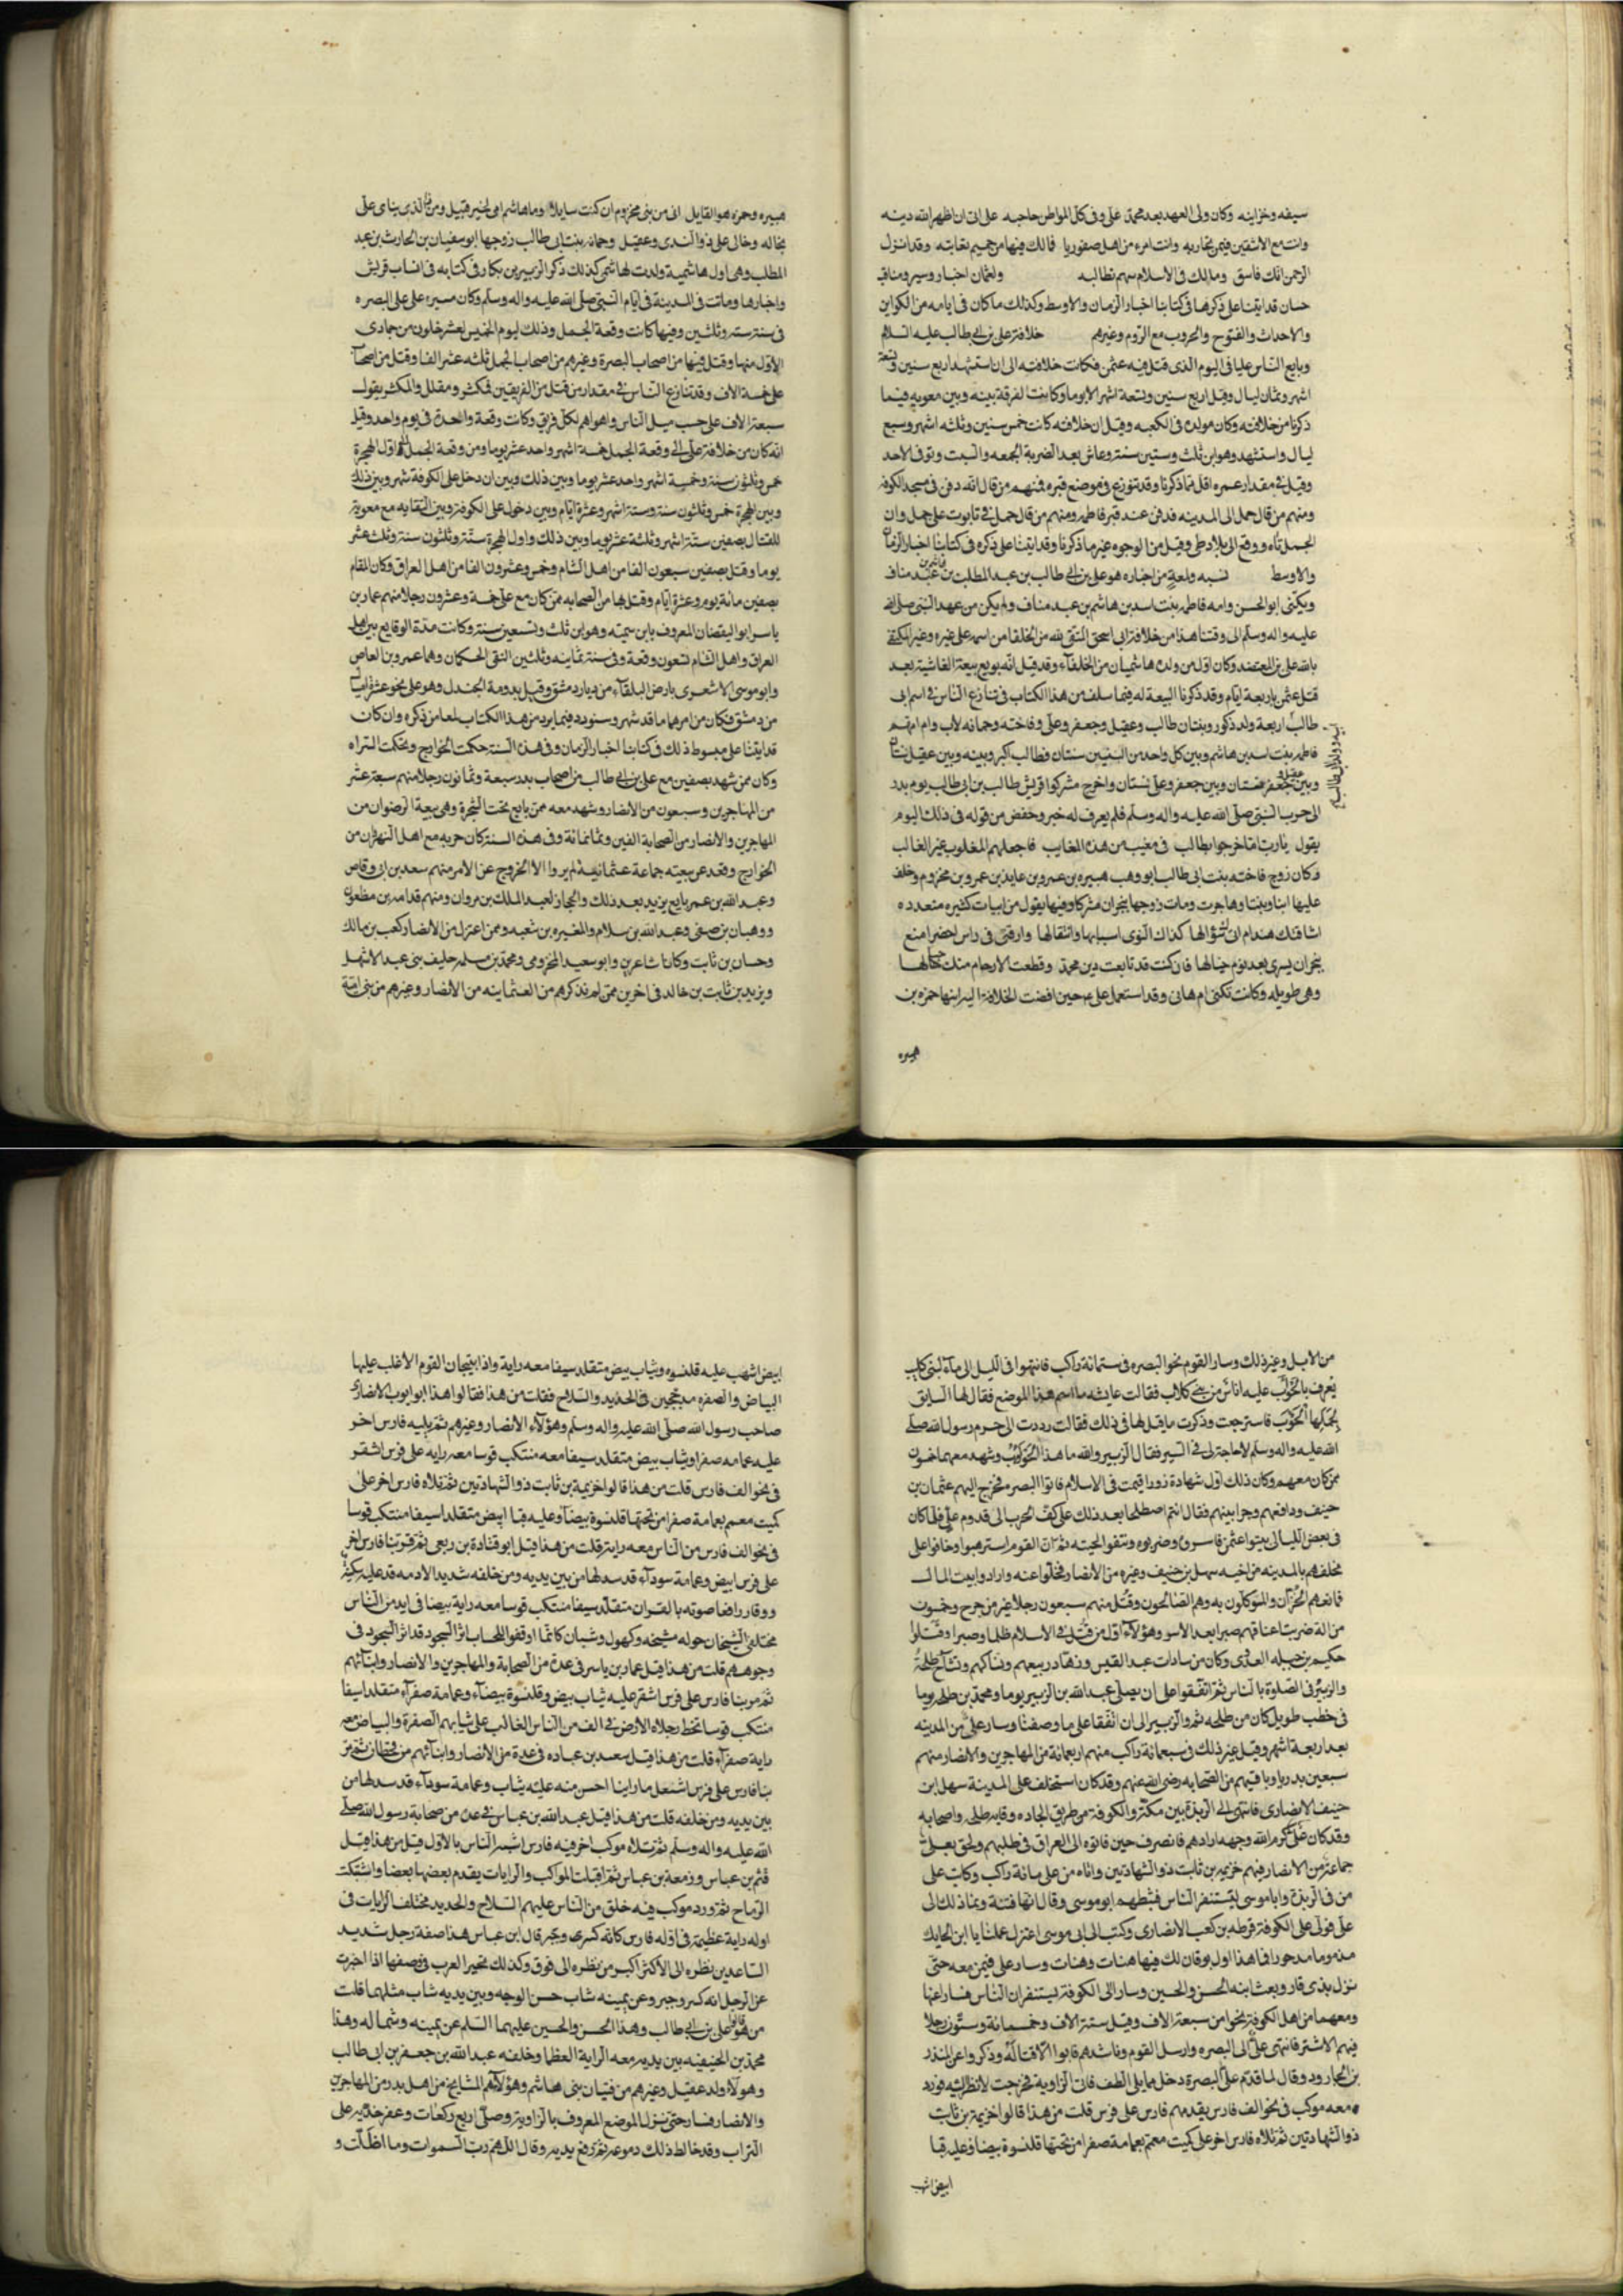 سيفه وخزاينه وكان ولى العهد بعد محمد على وفى كل المواطن حاجبه على الى ان اظهر الله دينه
وانت مع الاشقين فيمن تحاربه وانت امرء من اهل صفوريا فالك فيها من حميم تعاتبه وقد انزل
الرحمن انك فاسق ومالك فى الاسلام سهم تطالبه ولعثمان اخبار وسير ومناقب
حسان قد اتينا على ذكرها فى كتابنا اخبار الزمان والاوسط وكذلك ما كان فى ايامه من الكواين
والاحداث والفتوح والحروب مع الروم وغيرهم خلافة على بن ابى طالب عليه السلام
وبايع الناس عليا فى اليوم الذى قتل فيه عثمن فكانت خلافته الى ان استشهد اربع سنين وتسعة
اشهر وثمان ليال وقيل اربع سنين وتسعة اشهر الا يوما وكانت الفرقة بينه وبين معويه فيما
ذكرنا من خلافته وكان مولده فى الكعبه وقيل ان خلافته كانت خمس سنين وثلثه اشهر وسبع
ليال واستشهد وهو ابن ثلث وستين سنة وعاش بعد الضربة الجمعه والسبت وتوفى الاحد
وقيل فى مقدار عمره اقل مما ذكرنا وقد تنوزع فى موضع قبره فمنهم من قال انه دفن فى مسجد الكوفه
ومنهم من قال حمل الى المدينه فدفن عند قبر فاطمه ومنهم من قال حمل فى تابوت على جمل وان
الجمل تاه ووقع الى بلاد طى وقيل من الوجوه غير ما ذكرنا وقد اتينا على ذكره فى كتابنا اخبار الزمان
والاوسط نسبه ولمعة من اخباره هو على بن ابى طالب بن عبد المطلب بن هاشم بن عبد مناف
ويكنى ابو الحسن وامه فاطمه بنت اسد بن هاشم بن عبد مناف ولم يكن من عهد النبى صلى الله
عليه واله وسلم الى وقتنا هذا من خلافة ابى اسحق المتقى لله من الخلفا من اسمه على غيره وغير المكتفى
بالله على بن المعتضد وكان اول من ولده هاشميان من الخلفآء وقد قيل انه بويع بيعة الفاشية بعد
قتل عثمن باربعة ايام وقد ذكرنا البيعة له فيما سلف من هذا الكتاب فى تنازع الناس فى اسم ابى
طالب اربعة ولد ذكور وبنتان طالب وعقيل وجعفر وعلى وفاخته وجمانه لاب وام امهم
فاطمه بنت اسد بن هاشم وبين كل واحد من البنين سنتان فطالب اكبر وبينه وبين عقيل سنتان
وبين عقيل وجعفر سنتان وبين جعفر وعلى سنتان واخرج مشركوا قريش طالب بن ابى طالب يوم بدر
الى حرب النبى صلى الله عليه واله وسلم فلم يعرف له خبر وحفض من قوله فى ذلك اليوم
يقول يارب اما خرجوا بطالب فى مقنب من هذه المقانب فاجعلهم المغلوب غير الغالب
وكان زوج فاخته بنت ابى طالب ابو وهب هبيره بن عمرو بن عايذ بن عمرو بن مخزوم وخلف
عليها ابنا وبنتا وهاجرت ومات زوجها بنجران مشركا وفيها يقول من ابيات كثيره متعدده
اشاقتك هند ام اتى سؤالها كذاك النوى اسبابها وانتقالها وارقتى فى راس احضر امنع
بنجران يسرى بعد نوم خيالها فان كنت قد تابعت دين محمد وقطعت الارحام منك حبالها
وهى طويله وكانت تكنى ام هانى وقد استعمل على ع حين افضت الخلافة اليه ابنها حمزه بن
هبيره
هبيره وحمزه هو القايل انى من بنى مخزوم ان كنت سايلا وما هاشم امى لخير قبيل ومن ذا الذى يناى على
بخاله وخالى على ذو الندى وعقيل وجمانه بنت ابى طالب زوجها ابو سفيان بن الحارث بن عبد
المطلب وهى اول هاشمية ولدت لهاشمى كذلك ذكر الزبير بن بكار فى كتابه فى انساب قريش
واخبارها وماتت فى المدينة فى ايام النبى صلى الله عليه واله وسلم وكان مسير على على البصره
فى سنة ستة وثلثين وفيها كانت وقعة الجمل وذلك ليوم الخميس لعشر خلون من جمادى
الاول منها وقتل فيها من اصحاب البصرة وغيرهم من اصحاب الجمل ثلثه عشر الفا وقتل من اصحاب
على خمسة الاف وقد تنازع الناس فى مقدار من قتل من الفريقين فمكثر ومقلل والمكثر يقول
سبعة الاف على حسب ميل الناس واهواهم لكل فريق وكانت وقعة واحدة فى يوم واحد وقيل
انه كان من خلافة على الى وقعة الجمل خمسة اشهر واحد عشر يوما ومن وقعة الجمل الى اول الهجرة
خمس وثلثون سنة وخمسة اشهر واحد عشر يوما وبين ذلك وبين ان دخل على الكوفة شهر وبين ذلك
وبين الهجرة خمس وثلثون سنة وستة اشهر وعشرة ايام وبين دخول على الكوفة وبين التقايه مع معوية
للقتال بصفين ستة اشهر وثلثة عشر يوما وبين ذلك واول الهجرة ستة وثلثون سنة وثلث عشر
يوما وقتل بصفين سبعون الفا من اهل الشام وخمس وعشرون الفا من اهل العراق وكان المقام
بصفين مائة يوم وعشرة ايام وقتل بها من الصحابه ممن كان مع على خمسة وعشرون رجلا منهم عمار بن
ياسر ابو اليقضان المعروف بابن سميه وهو ابن ثلث وتسعين سنة وكانت مدة الوقايع بين اهل
العراق واهل الشام تسعون وقعة وفى سنة ثمانيه وثلثين التقى الحكمان وهما عمرو بن العاص
وابو موسى الاشعرى بارض البلقاء من ديار دمشق وقيل بدومة الجندل وهو على نحو عشرة اميال
من دمشق فكان من امرهما ما قد شهر وسنورد فيما يرد من هذا الكتاب لمعا من ذكره وان كان
قد اتينا على مبسوط ذلك فى كتابنا اخبار الزمان وفى هذه السنة حكمت الخوارج وتحكمت الشراه
وكان ممن شهد بصفين مع على بن ابى طالب من اصحاب بدر سبعة وثمانون رجلا منهم سبعة عشر
من المهاجرين وسبعون من الانصار وشهد معه ممن بايع تحت الشجرة وهى بيعة الرضوان من
المهاجرين والانصار من الصحابة الفين وثمانمائة وفى هذه السنة كان حربه مع اهل النهروان من
الخوارج وقعد عن بيعته جماعة عثمانية لم يروا الا الخروج عن الامر منهم سعد بن ابى وقاص
وعبد الله بن عمر بايع يزيد بعد ذلك والحجاز لعبد الملك بن مروان ومنهم قدامه بن مظعون
ووهبان بن صيفى وعبد الله بن سلام والمغيره بن شعبه وممن اعتزل من الانصار كعب بن مالك
وحسان بن ثابت وكانا شاعرين وابو سعيد المخزومى ومحمد بن مسلمه حليف بنى عبد الاشهل
ويزيد بن ثابت بن خالد فى اخرين ممن لم نذكرهم من العثمانيه من الانصار وغيرهم من بنى امية
من الابل وغير ذلك وسار القوم نحو البصره فى ستمائة راكب فانتهوا فى الليل الى مآء لبنى كلاب
يعرف بالحوءب عليه اناس من بنى كلاب فقالت عايشه ما اسم هذا الموضع فقال لها السايق
لجملها الحوءب فاسترجعت وذكرت ما قيل لها فى ذلك فقالت ردوت الى حرم رسول الله صلى
الله عليه واله وسلم لا حاجة لى فى السير فقال الزبير والله ما هذا الحوءب وشهد معهما خمسون
ممن كان معهم وكان ذلك اول شهادة زور اقيمت فى الاسلام فاتوا البصره فخرج اليهم عثمان بن
حنيف ودافعهم وجرا بينهم فقال ثم اصطلحا بعد ذلك على كف الحرب الى قدوم على فلما كان
فى بعض الليالى بيتوا عثمن فاسروه وضربوه ونتفوا لحيته ثم ان القوم استرهبوا وخافوا على
مخلفهم بالمدينه من اخيه سهل بن حنيف وغيره من الانصار فخلوا عنه وارادوا بيت المال
فمانعهم الخزان والموكلون به وهم الصالحون وقتل منهم سبعون رجلا غير من جرح وخمسون
من الة ضربت اعناقهم صبرا بعد الاسر وهؤلآء اول من قتل فى الاسلام ظلما وصبرا وقتلوا
حكيم بن جبله العبدى وكان من سادات عبد القيس وزهاد ربيعهم ونساكهم وتشاح طلحة
والزبير فى الصلوة بالناس ثم اتفقوا على ان يصلى عبد الله بن الزبير يوما ومحمد بن طلحه يوما
فى خطب طويل كان من طلحه والزبير الى ان اتفقا على ما وصفنا وسار على من المدينه
بعد اربعة اشهر وقيل غير ذلك فى سبعمائة راكب منهم اربعمائة من المهاجرين والانصار منهم
سبعين بدريا وباقيهم من الصحابه رضى الله عنهم وقد كان استخلف على المدينة سهل ابن
حنيف الانصارى فانتهى الى الربذة بين مكة والكوفة من طريق الجاده وفاته طلحه واصحابه
وقد كان على كرم الله وجهه ارادهم فانصرف حين فاتوه الى العراق فى طلبهم ولحق بعلى
جماعة من الانصار فيهم خزيمه بن ثابت ذو الشهادتين واتاه من طى مائة راكب وكاتب على
من فى الربذة واباموسى ليستنفر الناس فثبطهم ابو موسى وقال انها فتنة ونما ذلك الى
على فولى على الكوفة قرظه بن كعب الانصارى وكتب الى ابى موسى اعتزل عملنا يا ابن الحايك
مذموما مدحورا فما هذا اول يوم فان لك فيها هنات وهنات وسار على فيمن معه حتى
نزل بذى قار وبعث ابنه الحسن والحسين وسارا الى الكوفة يستنفران الناس فسارا عنها
ومعهما من اهل الكوفة نحوا من سبعة الاف وقيل ستة الاف وخمسمائة وستون رجلا
فيهم الاشتر فانتهى على الى البصره وارسل القوم وناشدهم فابوا الا قتاله وذكروا عن المنذر
بن الجارود وقال لما قدم على البصرة دخل مما يلى الطف فاتى الزاوية فخرجت لانظر اليه فورد
معه موكب فى نحو الف فارس يقدمهم فارس على فرس قلت من هذا قالوا خزيمة بن ثابت
ذو الشهادتين ثم تلاه فارس اخر على كميت معتم بعمامة صفرا من تحتها قلنسوة بيضا وعليه قبا
ابيض اشهب
ابيض اشهب عليه قلنسوه وثياب بيض متقلد سيفا معه راية واذا بتيجان القوم الاغلب عليها
البياض والصفره مدججين فى الحديد والسلاح فقلت من هذا فقالوا هذا ابو ايوب الانصارى
صاحب رسول الله صلى الله عليه واله وسلم وهؤلآء الانصار وغيرهم ثم يليه فارس اخر
عليه عمامه صفرا وثياب بيض متقلد سيفا معه متنكب قوسا معه رايه على فرس اشقر
فى نحو الف فارس قلت من هذا قالوا خزيمة بن ثابت ذو الشهادتين ثم تلاه فارس اخر على
كميت معتم بعمامة صفرا من تحتها قلنسوة بيضآ وعليه قبا ابيض متقلدا سيفا متنكب قوسا
فى نحو الف فارس من الناس معه راية قلت من هذا قيل ابو قتادة بن ربعى ثم مر بنا فارس اخر
على فرس ابيض وعمامة سودآء قد سدلها من بين يديه ومن خلفه شديد الادمه قد عليه سكينة
ووقار رافعا صوته بالقران متقلد سيفا متنكب قوسا معه راية بيضا فى ايد من الناس
مختلفى التيجان حوله مشيخه وكهول وشبان كانما اوقفوا للحساب اثر السجود قد اثر السجود فى
وجوههم قلت من هذا قيل عمار بن ياسر فى عدة من الصحابة والمهاجرين والانصار وابنآئهم
ثم مر بنا فارس على فرس اشقر عليه ثياب بيض وقلنسوة بيضآء وعمامة صفرآء متقلدا سيفا
متنكب قوسا تخط رجلاه الارض فى الف من الناس الغالب على ثيابهم الصفرة والبياض معه
راية صفرآء قلت من هذا قيل سعد بن عباده فى عدة من الانصار وابنآئهم من قحطان ثم مر
بنا فارس على فرس اشعل ما راينا احسن منه عليه ثياب وعمامة سودآء قد سدلها من
بين يديه ومن خلفه قلت من هذا قيل عبد الله بن عباس فى عدة من صحابة رسول الله صلى
الله عليه واله وسلم ثم تلاه موكب اخر فيه فارس اشبه الناس بالاول قيل من هذا قيل
قثم بن عباس وزمعة بن عباس ثم اقبلت المواكب والرايات يقدم بعضها بعضا واشتبكت
الرماح ثم ورد موكب فيه خلق من الناس عليهم السلاح والحديد مختلف الرايات فى
اوله راية عظيمة فى اوله فارس كانه كسرى وجبر قال ابن عباس هذا صفة رجل شديد
الساعدين نظره الى الاكثر اكبر من نظره الى فوق وكذلك تخبر العرب فى وصفها اذا اخبرت
عن الرجل انه كسر وجبر وعن يمينه شاب حسن الوجه وبين يديه شاب مثلهما قلت
من هؤلا قالوا على بن ابى طالب وهذا الحسن والحسين عليهما السلم عن يمينه وشماله وهذا
محمد بن الحنيفيه بين يديه معه الراية العظما وخلفه عبد الله بن جعفر بن ابى طالب
وهولآء ولد عقيل وغيرهم من فتيان بنى هاشم وهؤلآء هم المشايخ من اهل بدر من المهاجرين
والانصار فسار حتى نزل الموضع المعروف بالزاوية وصلى اربع ركعات وعفر خديه على
التراب وقد خالط ذلك دموعه ثم رفع يديه وقال اللهم رب السموات وما اظلت و